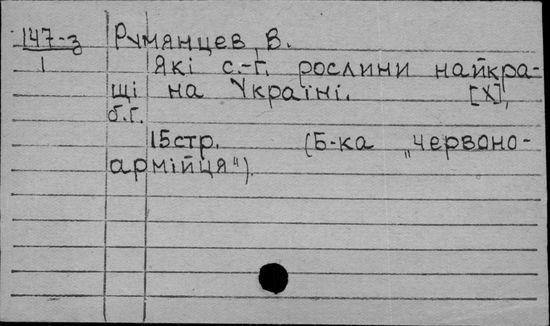 147-з Румянцев, В.
1 Які с.-г. рослини найкра-
щі на Україні. [Х],
б.г.
15стр. (Б-ка „червоно-
армійця").